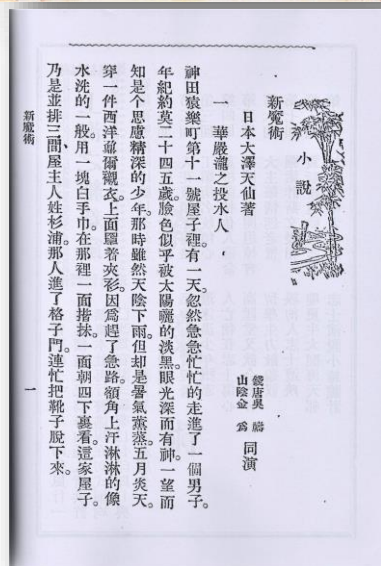 小說
新魔術
日本大澤天仙著
錢唐吳檮
山陰金為
同演
一　華嚴瀧之投水人
神田猿樂町第十一號屋子裡。有一天。忽然急急忙忙的走進了一個男子。
年紀約莫二十四五歲。臉色似乎被太陽曬的淡黑。眼光深而有神。一望而
知是个思慮精深的少年。那時雖然天陰下雨。但却是暑氣薰蒸。五月炎天。
穿一件西洋襯衣。上面罩着夾衫。因爲趕了急路。額角上汗淋淋的像
水洗的一般。用一塊白手巾。在那裡一面揩抹。一面朝四下裏看。這家屋子。
乃是並排三間。屋主人姓杉浦。那人進了格子門。連忙把靴子脫下來。
新魔術
一